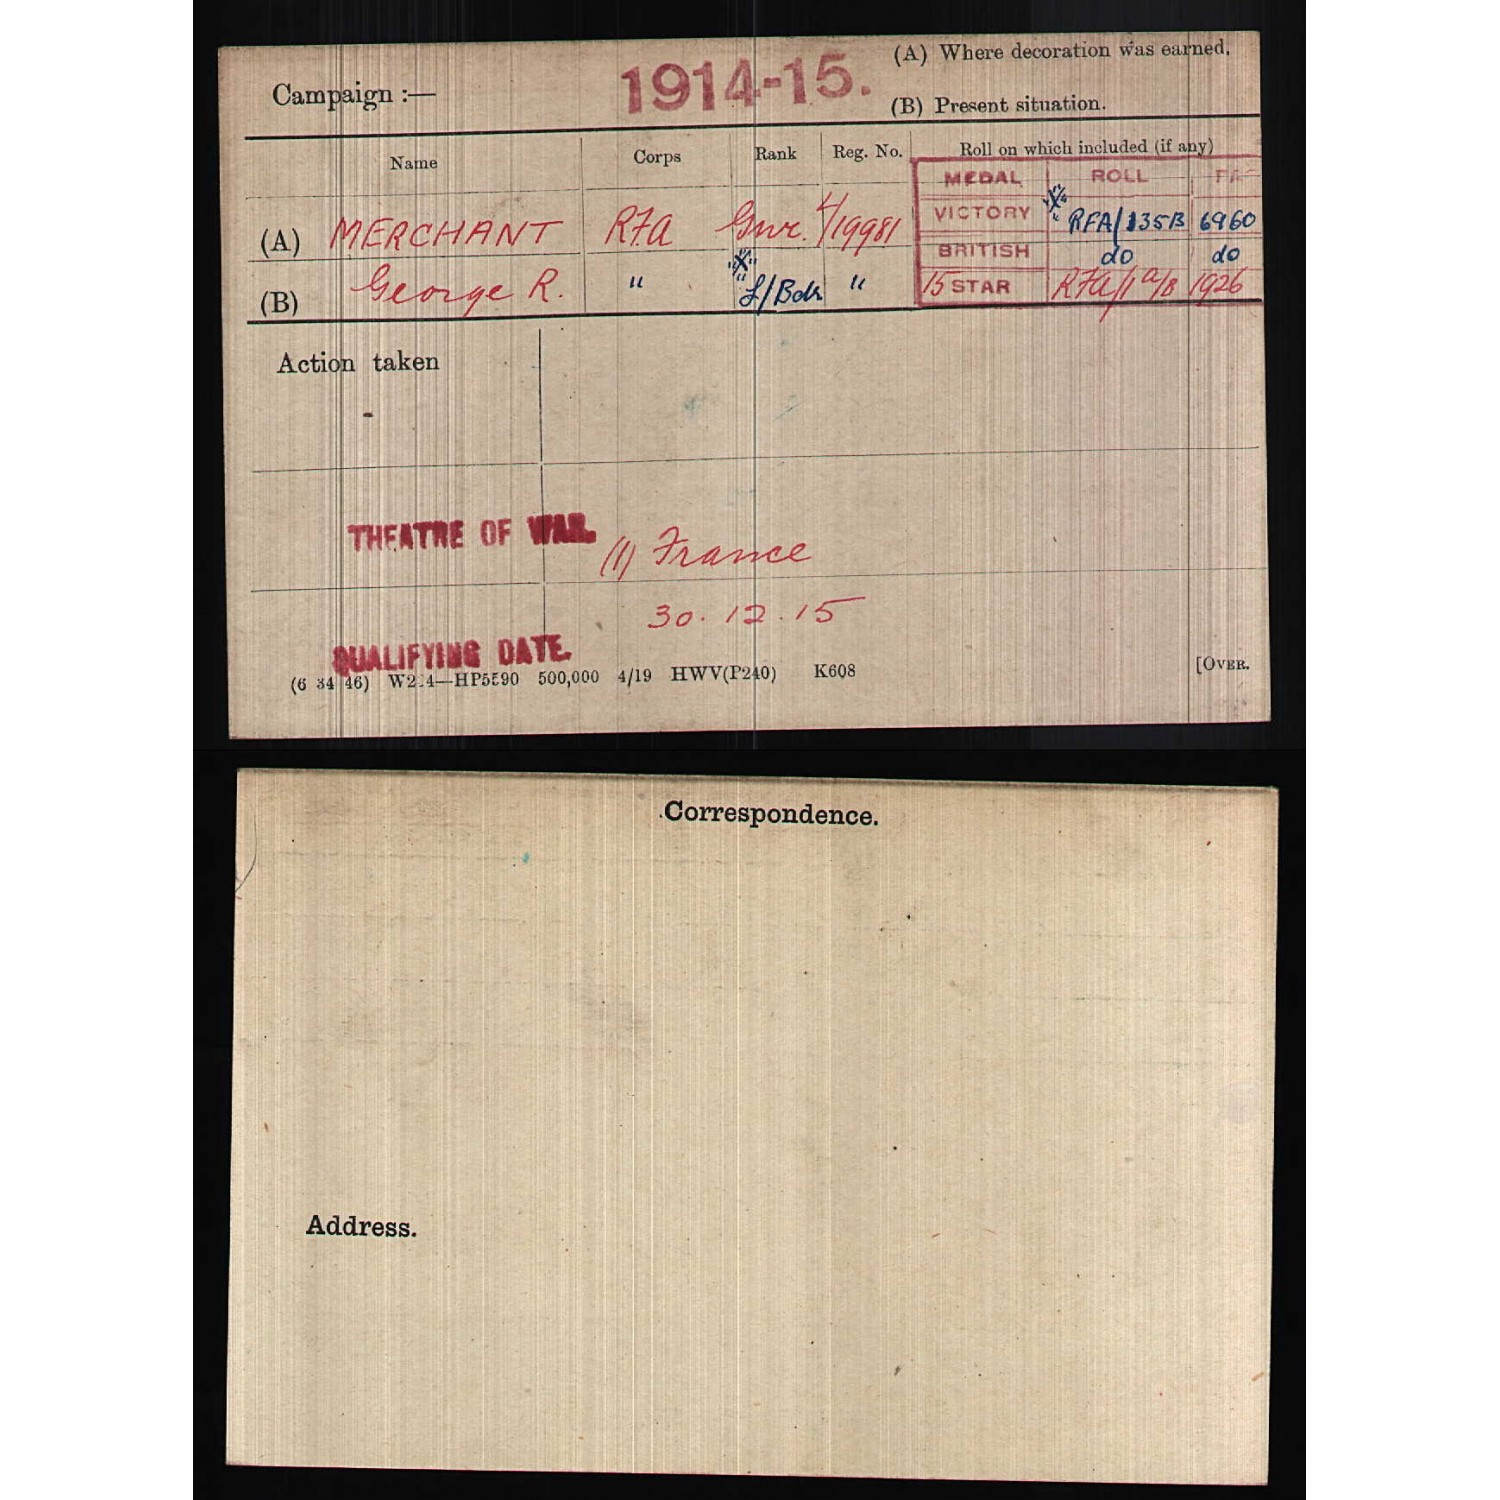 Campaign :—
1914-15.
(A) Where decoration was earned.
(B) Present situation.
Name Corps Rank Reg. No. Roll on which included (if any)
MEDAL ROLL
(A) MERCHANT RFA Gnr. 4/19981 VICTORY "X" RFA/135B 6960
BRITISH do do
(B) George R. " "X" L/Bdr " 15 STAR RFA/1a/B 1926
Action taken
THEATRE OF WAR. (1) France
30.12.15
QUALIFYING DATE.
(6 34 46) W2 4—HP5590 500,000 4/19 HWV(P240) K608
[OVER.
Correspondence.
Address.